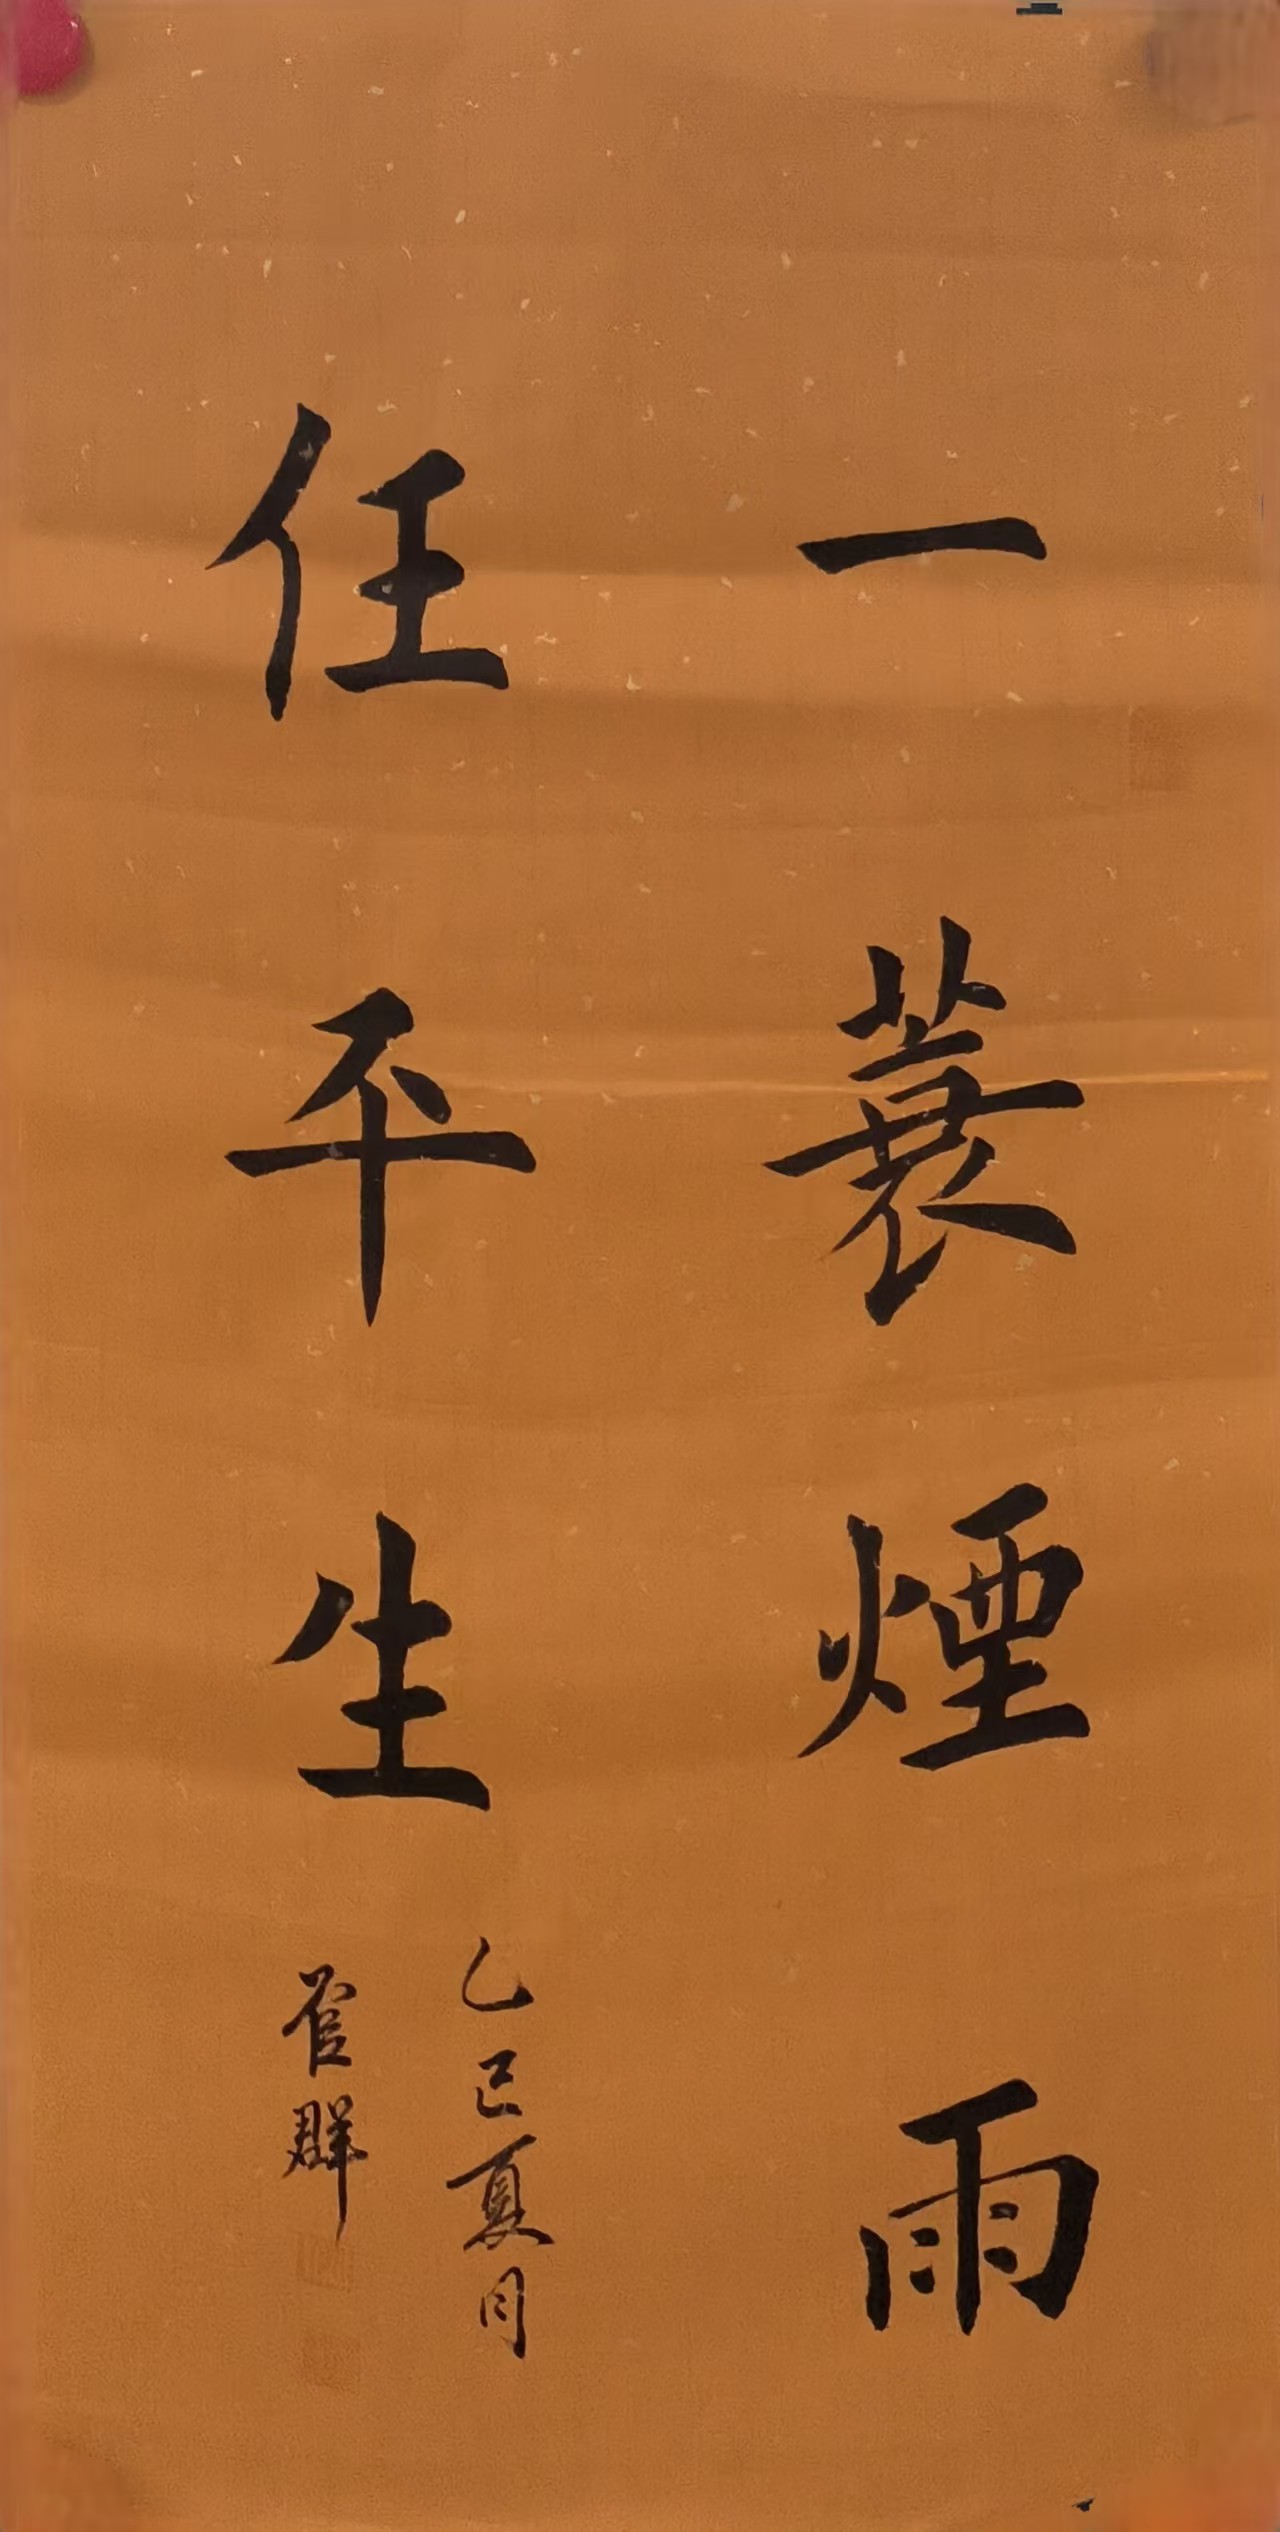 一蓑煙雨
任平生
乙巳夏月
管群